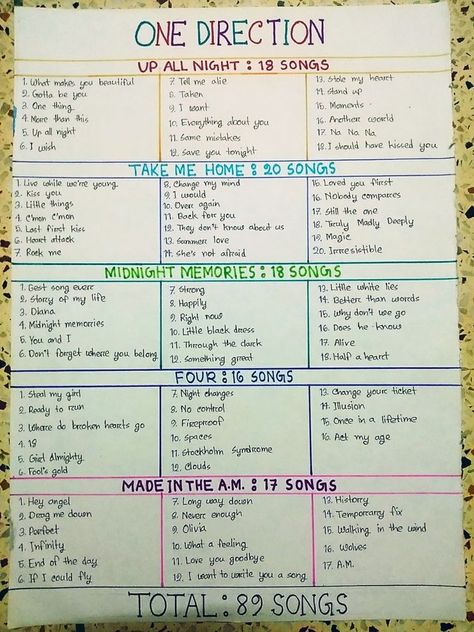 ONE DIRECTION
UP ALL NIGHT : 18 SONGS
1. What makes you beautiful
2. Gotta be you
3. One thing
4. More than this
5. Up all night
6. I wish
7. Tell me alie
8. Taken
9. I want
10. Everything about you
11. Same mistakes
12. Save you tonight
13. Stole my heart
14. Stand up
15. Moments
16. Another world
17. Na Na Na
18. I should have kissed you
TAKE ME HOME : 20 SONGS
1. Live while we're young
2. Kiss you
3. Little things
4. C'mon c'mon
5. Last first kiss
6. Heart attack
7. Rock me
8. Change my mind
9. I would
10. Over again
11. Back for you
12. They don't know about us
13. Summer love
14. She's not afraid
15. Loved you first
16. Nobody compares
17. Still the one
18. Truly Madly Deeply
19. Magic
20. Irresistible
MIDNIGHT MEMORIES : 18 SONGS
1. Best song ever
2. Story of my life
3. Diana
4. Midnight memories
5. You and I
6. Don't forget where you belong
7. Strong
8. Happily
9. Right now
10. Little black dress
11. Through the dark
12. Something great
13. Little white lies
14. Better than words
15. Why don't we go
16. Does he know
17. Alive
18. Half a heart
FOUR : 16 SONGS
1. Steal my girl
2. Ready to run
3. Where do broken hearts go
4. 18
5. Girl almighty
6. Fool's gold
7. Night changes
8. No control
9. Fireproof
10. Spaces
11. Stockholm Syndrome
12. Clouds
13. Change your ticket
14. Illusion
15. Once in a lifetime
16. Act my age
MADE IN THE A.M. : 17 SONGS
1. Hey angel
2. Drag me down
3. Perfect
4. Infinity
5. End of the day
6. If I could fly
7. Long way down
8. Never enough
9. Olivia
10. What a feeling
11. Love you goodbye
12. I want to write you a song
13. History
14. Temporary fix
15. Walking in the wind
16. Wolves
17. A.M.
TOTAL : 89 SONGS